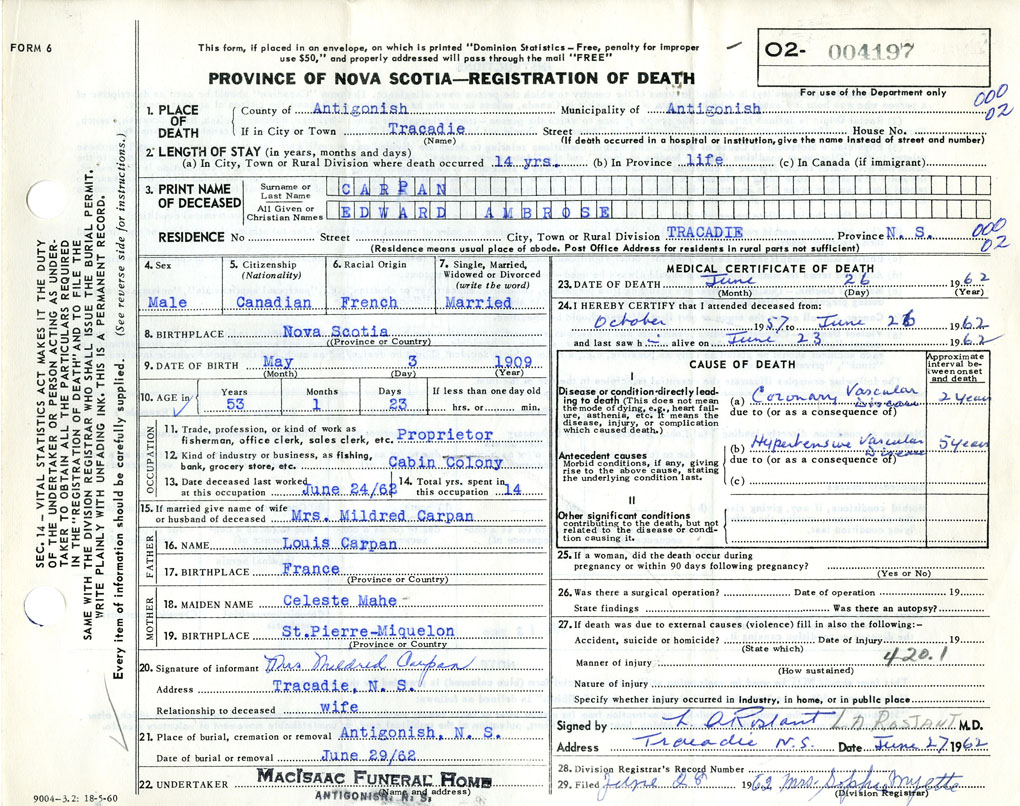 FORM 6
This form, if placed in an envelope, on which is printed "Dominion Statistics – Free, penalty for improper
use $50," and properly addressed will pass through the mail "FREE"
O2- 004197
For use of the Department only
PROVINCE OF NOVA SCOTIA—REGISTRATION OF DEATH
000
02
1. PLACE OF DEATH
County of Antigonish Municipality of Antigonish
If in City or Town Tracadie Street House No.
(Name) (If death occurred in a hospital or institution, give the name instead of street and number)
2. LENGTH OF STAY (in years, months and days)
(a) In City, Town or Rural Division where death occurred 14 yrs. (b) In Province life (c) In Canada (if immigrant)
3. PRINT NAME OF DECEASED
Surname or Last Name CARPAN
All Given or Christian Names EDWARD AMBROSE
RESIDENCE No Street City, Town or Rural Division TRACADIE Province N. S.
000
02
(Residence means usual place of abode. Post Office Address for residents in rural parts not sufficient)
4. Sex Male
5. Citizenship (Nationality) Canadian
6. Racial Origin French
7. Single, Married, Widowed or Divorced (write the word) Married
8. BIRTHPLACE Nova Scotia
((Province or Country)
9. DATE OF BIRTH May 3 1909
(Month) (Day) (Year)
10. AGE in Years 53 Months 1 Days 23 If less than one day old hrs. or min.
OCCUPATION
11. Trade, profession, or kind of work as
fisherman, office clerk, sales clerk, etc. Proprietor
12. Kind of industry or business, as fishing,
bank, grocery store, etc. Cabin Colony
13. Date deceased last worked at this occupation June 24/62 14. Total yrs. spent in this occupation 14
15. If married give name of wife
or husband of deceased Mrs. Mildred Carpan
FATHER
16. NAME Louis Carpan
17. BIRTHPLACE France
(Province or Country)
MOTHER
18. MAIDEN NAME Celeste Mahe
19. BIRTHPLACE St.Pierre-Miquelon
(Province or Country
20. Signature of informant Mrs Mildred Carpan
Address Tracadie, N. S.
Relationship to deceased wife
21. Place of burial, cremation or removal Antigonish, N. S.
Date of burial or removal June 29/62
22. UNDERTAKER MACISAAC FUNERAL HOME
(Name and address)
ANTIGONISH, N. S.
9004–3.2: 18-5-60
MEDICAL CERTIFICATE OF DEATH
23. DATE OF DEATH June 26 1962
(Month) (Day) (Year)
24. I HEREBY CERTIFY that I attended deceased from:
October 1957 to June 26 1962
and last saw h alive on June 23 1962
CAUSE OF DEATH
Approximate interval between onset and death
I
Disease or condition directly leading to death (This does not mean the mode of dying, e.g., heart failure, asthenia, etc. It means the disease, injury, or complication which caused death.)
(a) Coronary Vascular Disease 2 years
due to (or as a consequence of)
Antecedent causes
Morbid conditions, if any, giving rise to the above cause, stating the underlying condition last.
(b) Hypertensive Vascular Disease 5 years
due to (or as a consequence of)
(c)
II
Other significant conditions
contributing to the death, but not related to the disease or condition causing it.
25. If a woman, did the death occur during
pregnancy or within 90 days following pregnancy?
(Yes or No)
26. Was there a surgical operation? Date of operation 19
State findings Was there an autopsy?
27. If death was due to external causes (violence) fill in also the following:–
Accident, suicide or homicide? Date of injury 19
(State which)
420.1
Manner of injury
(How sustained)
Nature of injury
Specify whether injury occurred in industry, in home, or in public place
Signed by L. A Rostant L. A. ROSTANT M.D.
Address Tracadie N.S. Date June 27 1962
28. Division Registrar's Record Number
29. Filed June 28 1962 Mrs. Sophie Myette
(Division Registrar)
SEC. 14 — VITAL STATISTICS ACT MAKES IT THE DUTY
OF THE UNDERTAKER OR PERSON ACTING AS UNDER-
TAKER TO OBTAIN ALL THE PARTICULARS REQUIRED
IN THE "REGISTRATION OF DEATH" AND TO FILE THE
SAME WITH THE DIVISION REGISTRAR WHO SHALL ISSUE THE BURIAL PERMIT.
WRITE PLAINLY WITH UNFADING INK. THIS IS A PERMANENT RECORD.
Every item of information should be carefully supplied. (See reverse side for instructions.)